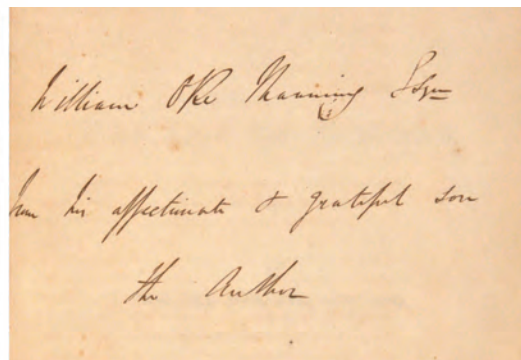 William Oke Manning Esqre
from his affectionate & grateful son
the Author